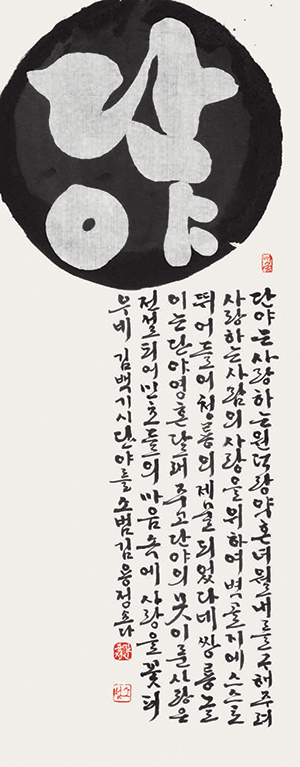 단야
단야는 사랑하는 원덕랑 약혼녀 월내를 구해주려
사랑하는 사람의 사랑을 위하여 벽골제에 스스로
뛰어들어 청룡의 제물 되었다네 쌍룡놀
이는 단야 영혼 달래주고 단야의 못 이룬 사랑은
전설 되어 민초들의 마음 속에 사랑을 꽃 피
우네 김백기 시 단야를 소범